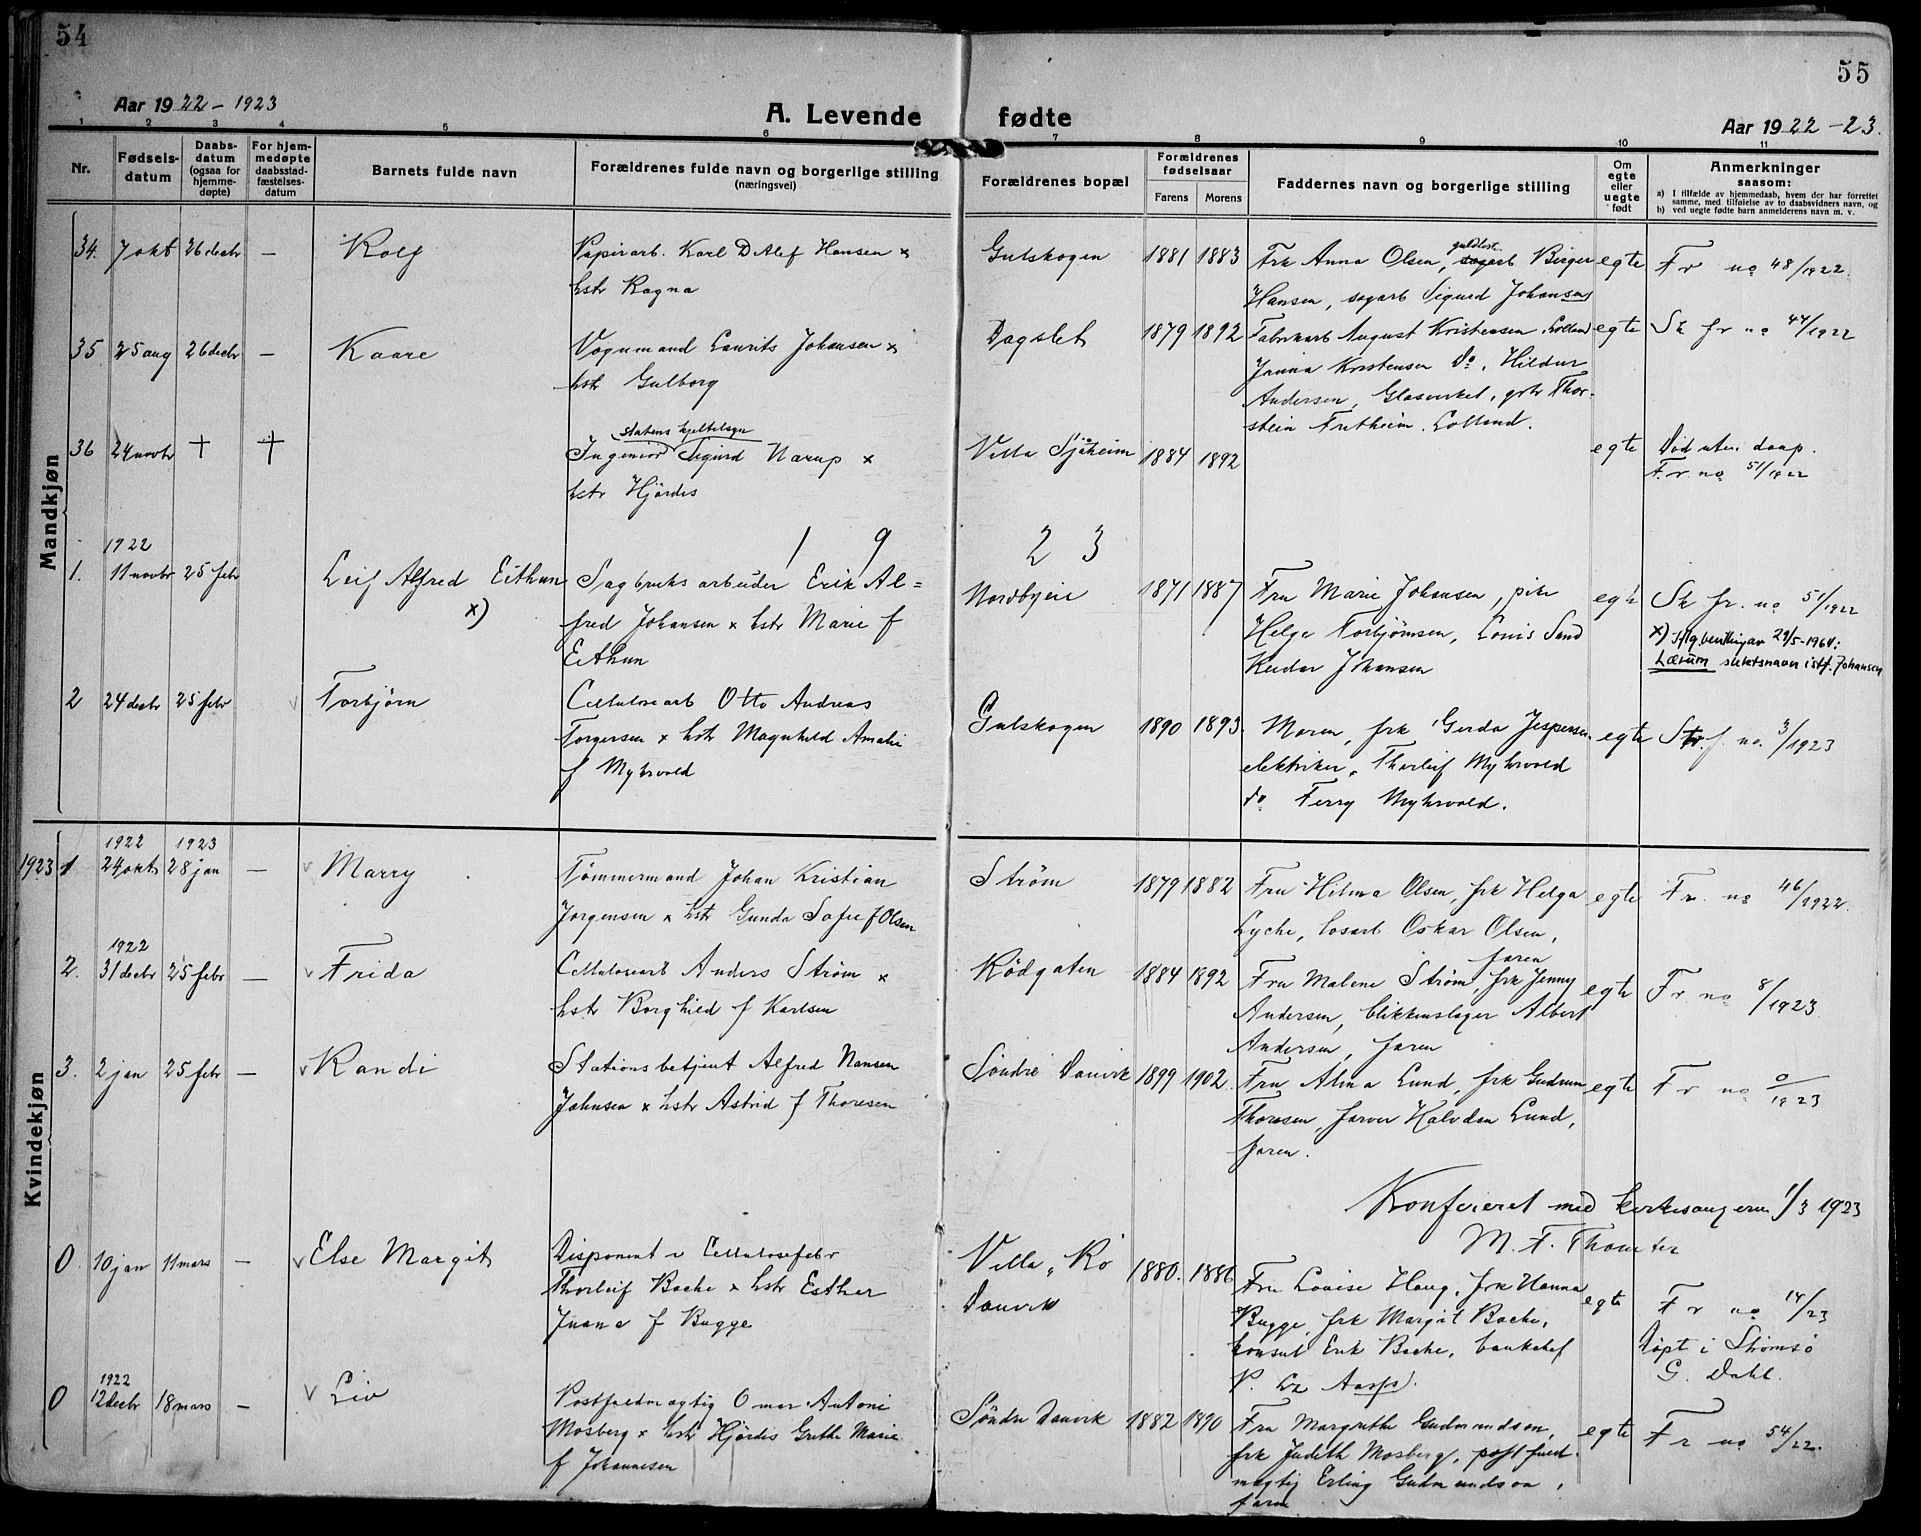 54
55
Aar 1922 - 1923
A. Levende fødte
Aar 1922 - 23.
1 2 3 4 5 6 7 8 9 10 11
Nr.
Fødsels-
datum
Daabs-
datum
(ogsaa for
hjemme-
døpte)
For hjem-
medøpte
daabsstad-
fæstelses-
datum
Barnets fulde navn
Forældrenes fulde navn og borgerlige stilling
(næringsvei)
Forældrenes bopæl
Forældrenes
fødselsaar
Farens Morens
Faddernes navn og borgerlige stilling
Om
egte
eller
uegte
født
Anmerkninger
saasom:
a) I tilfælde av hjemmedaab, hvem der har forrettet
samme, med tilføielse av to daabsvidners navn, og
b) ved uegte fødte barn anmelderens navn m. v.
Mandkjøn
34. 7 okt 26 decbr — Rolf
Papirarb. Karl Ditlef Hansen x
hstr Ragna
Gulskogen 1881 1883
Frk Anna Olsen, sagarb Birger
Hansen, sagarb Sigurd Johansen
egte Fr no 48/1922.
35 25 aug 26 decbr — Kaare
Vognmand Laurits Johansen x
hstr Gulborg
Dagslet 1879 1892
Fabrikarb August Kristensen, Lolland
Janna Kristensen Do, Hildur
Andersen, Glasenkel, grbr Thor-
stein Fretheim, Lolland.
egte Sk fr no 44/1922
36 24 novbr † †
statens
Ingeniør Sigurd Narup x
hstr Hjørdis
Villa Sjøheim 1884 1892
egte Død uten daap.
Fr. no 51/1922
1 9 2 3
1922
1. 11 novbr 25 febr Leif Alfred Eithun
x)
Sagbruksarbeider Erik Al=
fred Johansen x hstr Marie f
Eithun
Nordbyeie 1871 1887
Fru Marie Johansen, pike
Helga Torbjørnsen, Louis Sand
Reidar Johansen
egte Sk fr. no 51/1922
x) Iflg bevilling av 29/5-1964:
Lærum slektsnavn istf. Johansen
2 24 decbr 25 febr v Torbjørn
Cellulosearb Otto Andreas
Torgersen x hstr Magnhild Amalie
f Myhrvold
Gulskogen 1890 1893.
Moren, frk Gerda Jespersen
elektriker, Thorleif Myhrvold
do Ferry Myhrvold.
egte f. no. 3/1923
Kvindekjøn
1922 1923
1923 1 24 okt 28 jan — v Marry
Tømmermand Johan Kristian
Jørgensen x hstr Gunda Sofie f Olsen
Strøm 1879 1882
Fru Hilma Olsen, frk Helga
Lyche, losarb Oskar Olsen,
faren
egte Fr. no 46/1922.
1922
2. 31 decbr 25 febr — v Frida
Cellulosearb Anders Strøm x
hstr Borghild f Karlsen
Rødgaten 1884 1892
Fru Malene Strøm, frk Jenny
Andersen, blikkenslager Albert
Andersen, faren
egte Fr. no 8/1923
3. 2 jan 25 febr — v Randi
Stationsbetjent Alfred Nansen
Johnsen x hstr Astrid f Thoresen
Søndre Danvik 1899 1902.
Fru Alma Lund, frk Gudrun
Thoresen, farver Halvdan Lund,
faren.
egte Fr no 0/1923
Konfereret med kirkesangeren 1/3 1923
M. F.
0. 10 jan 11 mars — v Else Margit
Disponent v Cellulosefabr
Thorleif Bache x hstr Esther
Juana f Bugge
Villa "Ro
Danvik
1880. 1886
Fru Louise Haug, frk Nanna
Bugge, frk Margit Bache,
konsul Erik Bache, bankchef
egte Fr no 14/23
Døpt i Strømsø
G. Dahl.
1922
0 12 decbr 18 mars — v Liv
Postfuldmægtig Omar Antoni
Mosberg x hstr Hjørdis Grethe Marie
f Johannesen
Søndre Danvik 1882 1890
Fru Margrethe Gudmundson,
frk Judith Mosberg, postfuld-
mægtig Erling Gudmundson,
faren
egte Fr no 54/22.